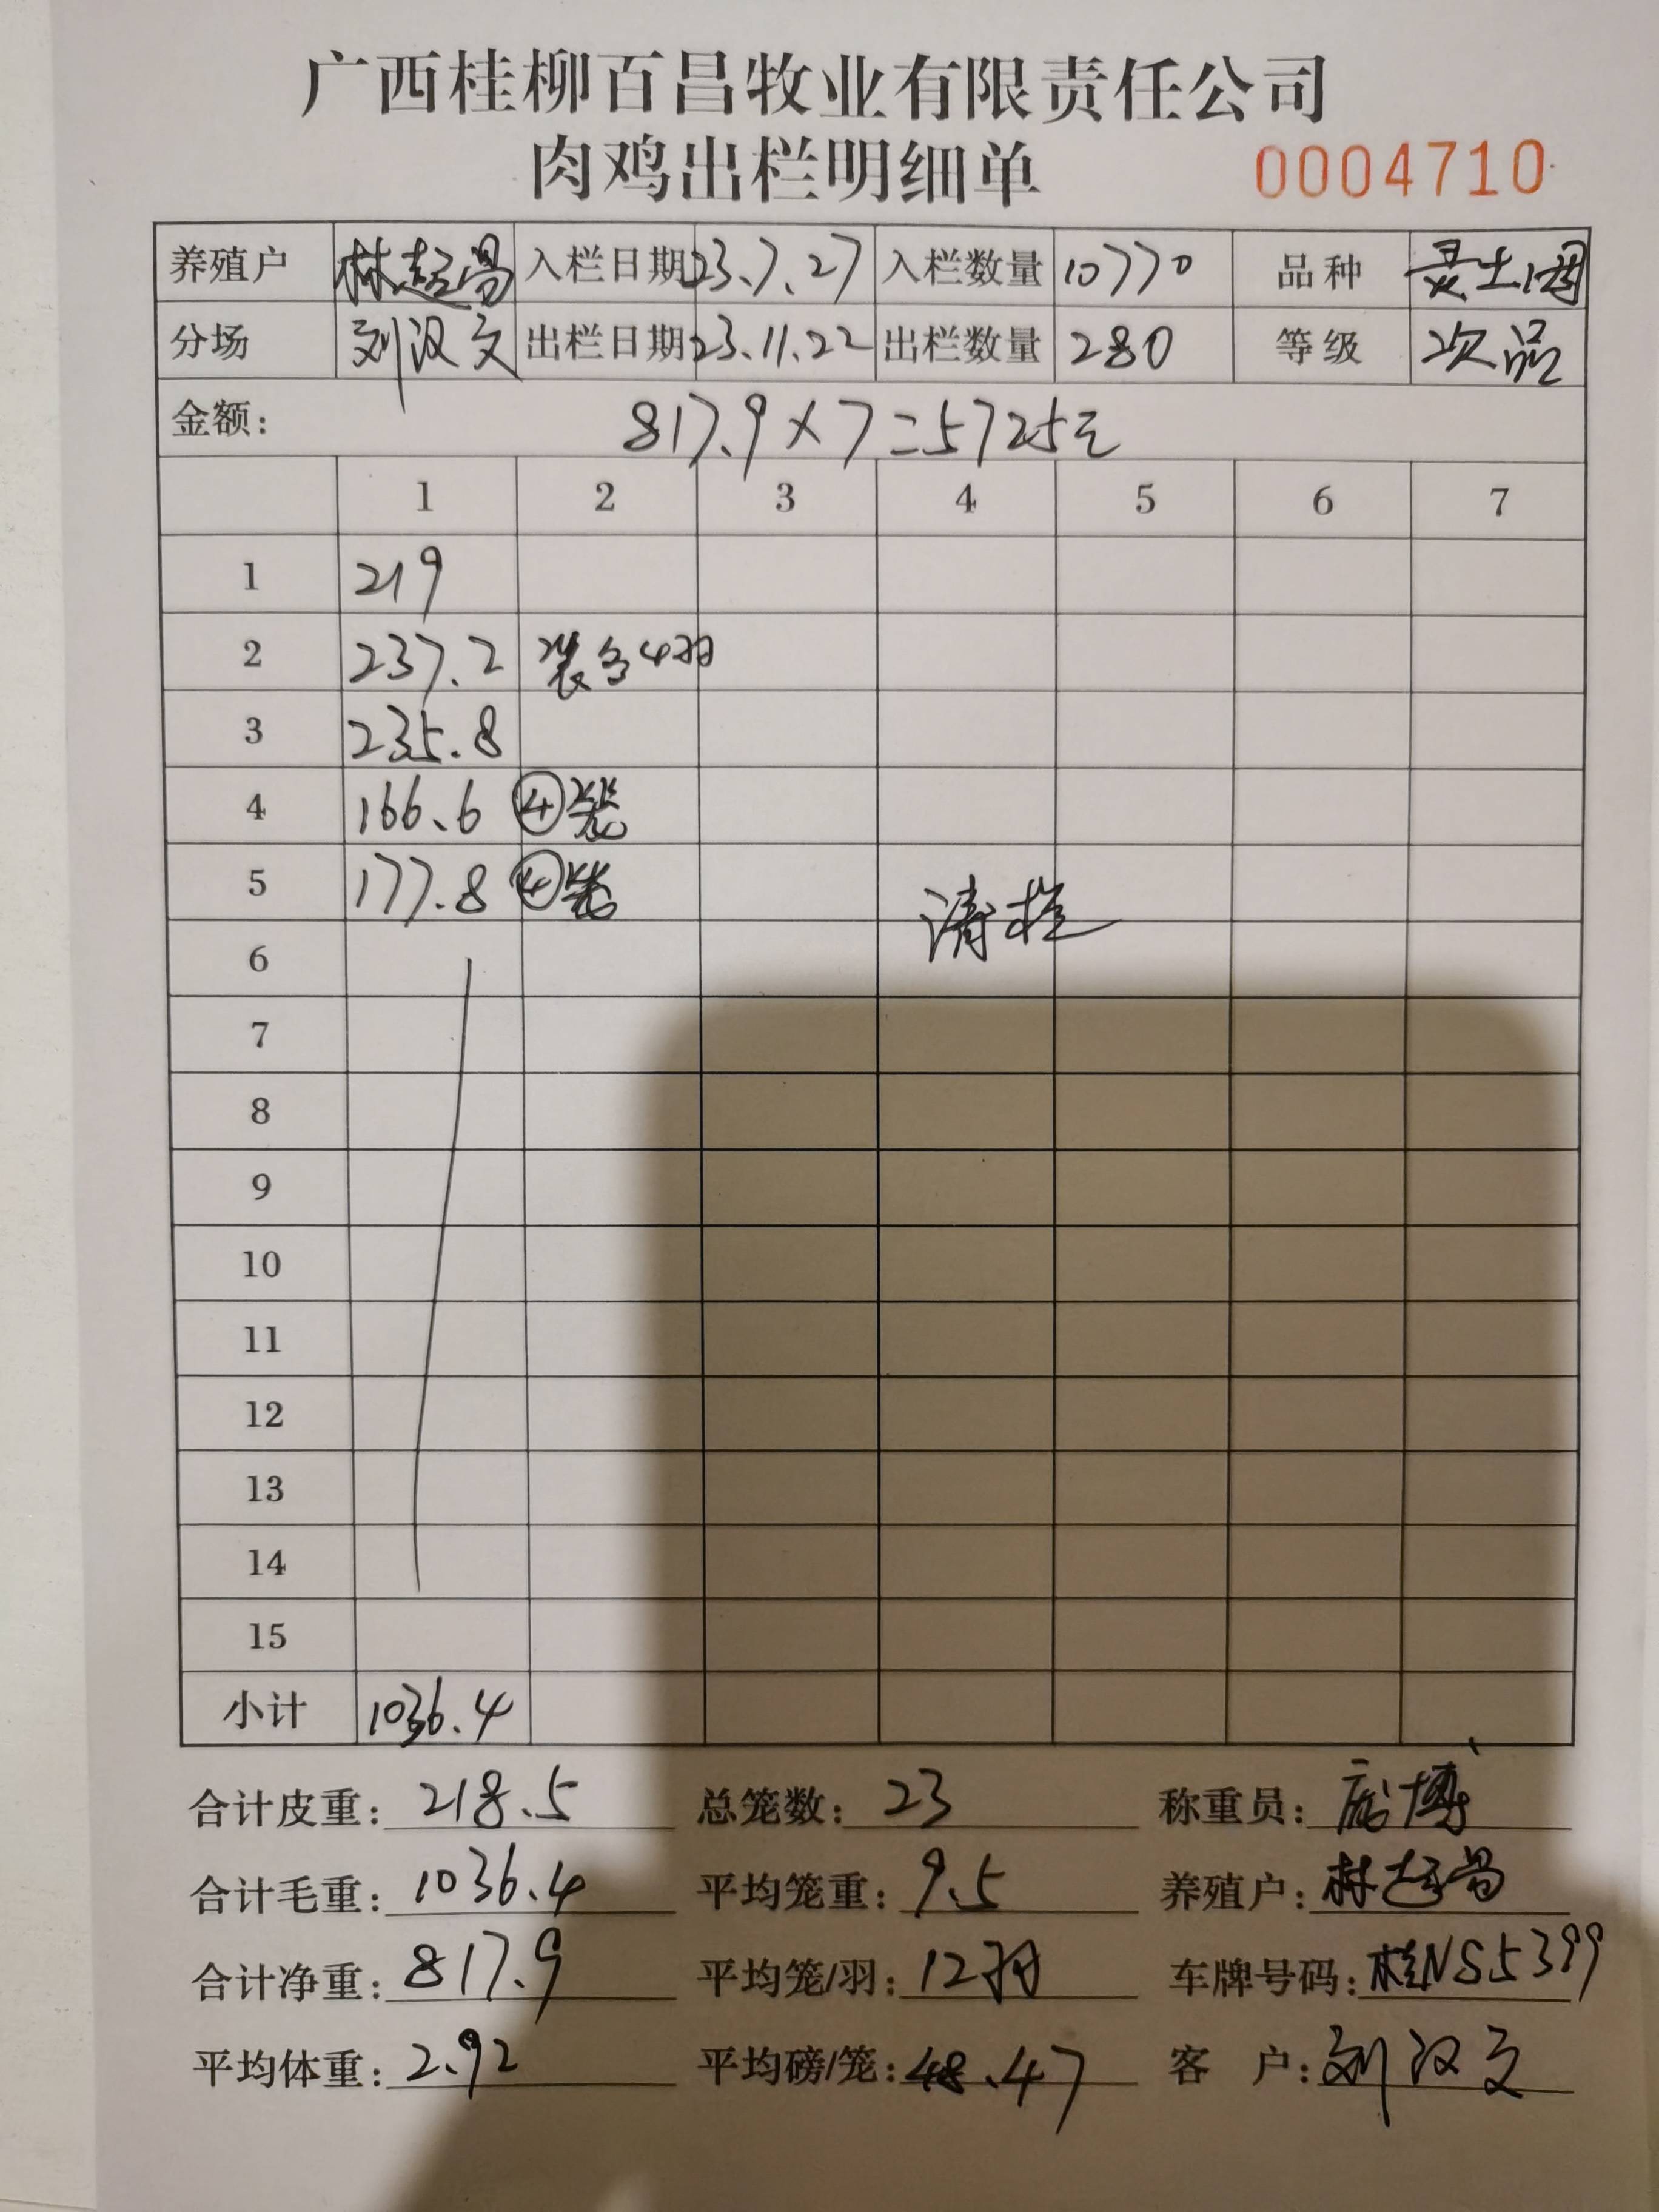 广西桂柳百昌牧业有限责任公司
肉鸡出栏明细单 0004710
养殖户 林超 入栏日期 23.7.27 入栏数量 10770 品种 土
分场 刘汉文 出栏日期 23.11.22 出栏数量 280 等级 次品
金额: 817.9×7=5725元
1 2 3 4 5 6 7
1 219
2 237.2 装 4羽
3 235.8
4 166.6 ④笼
5 177.8 ④笼 清栏
6
7
8
9
10
11
12
13
14
15
小计 1036.4
合计皮重: 218.5 总笼数: 23 称重员: 博
合计毛重: 1036.4 平均笼重: 9.5 养殖户: 林超
合计净重: 817.9 平均笼/羽: 12羽 车牌号码: 桂NS5399
平均体重: 2.92 平均磅/笼: 48.47 客 户: 刘汉文